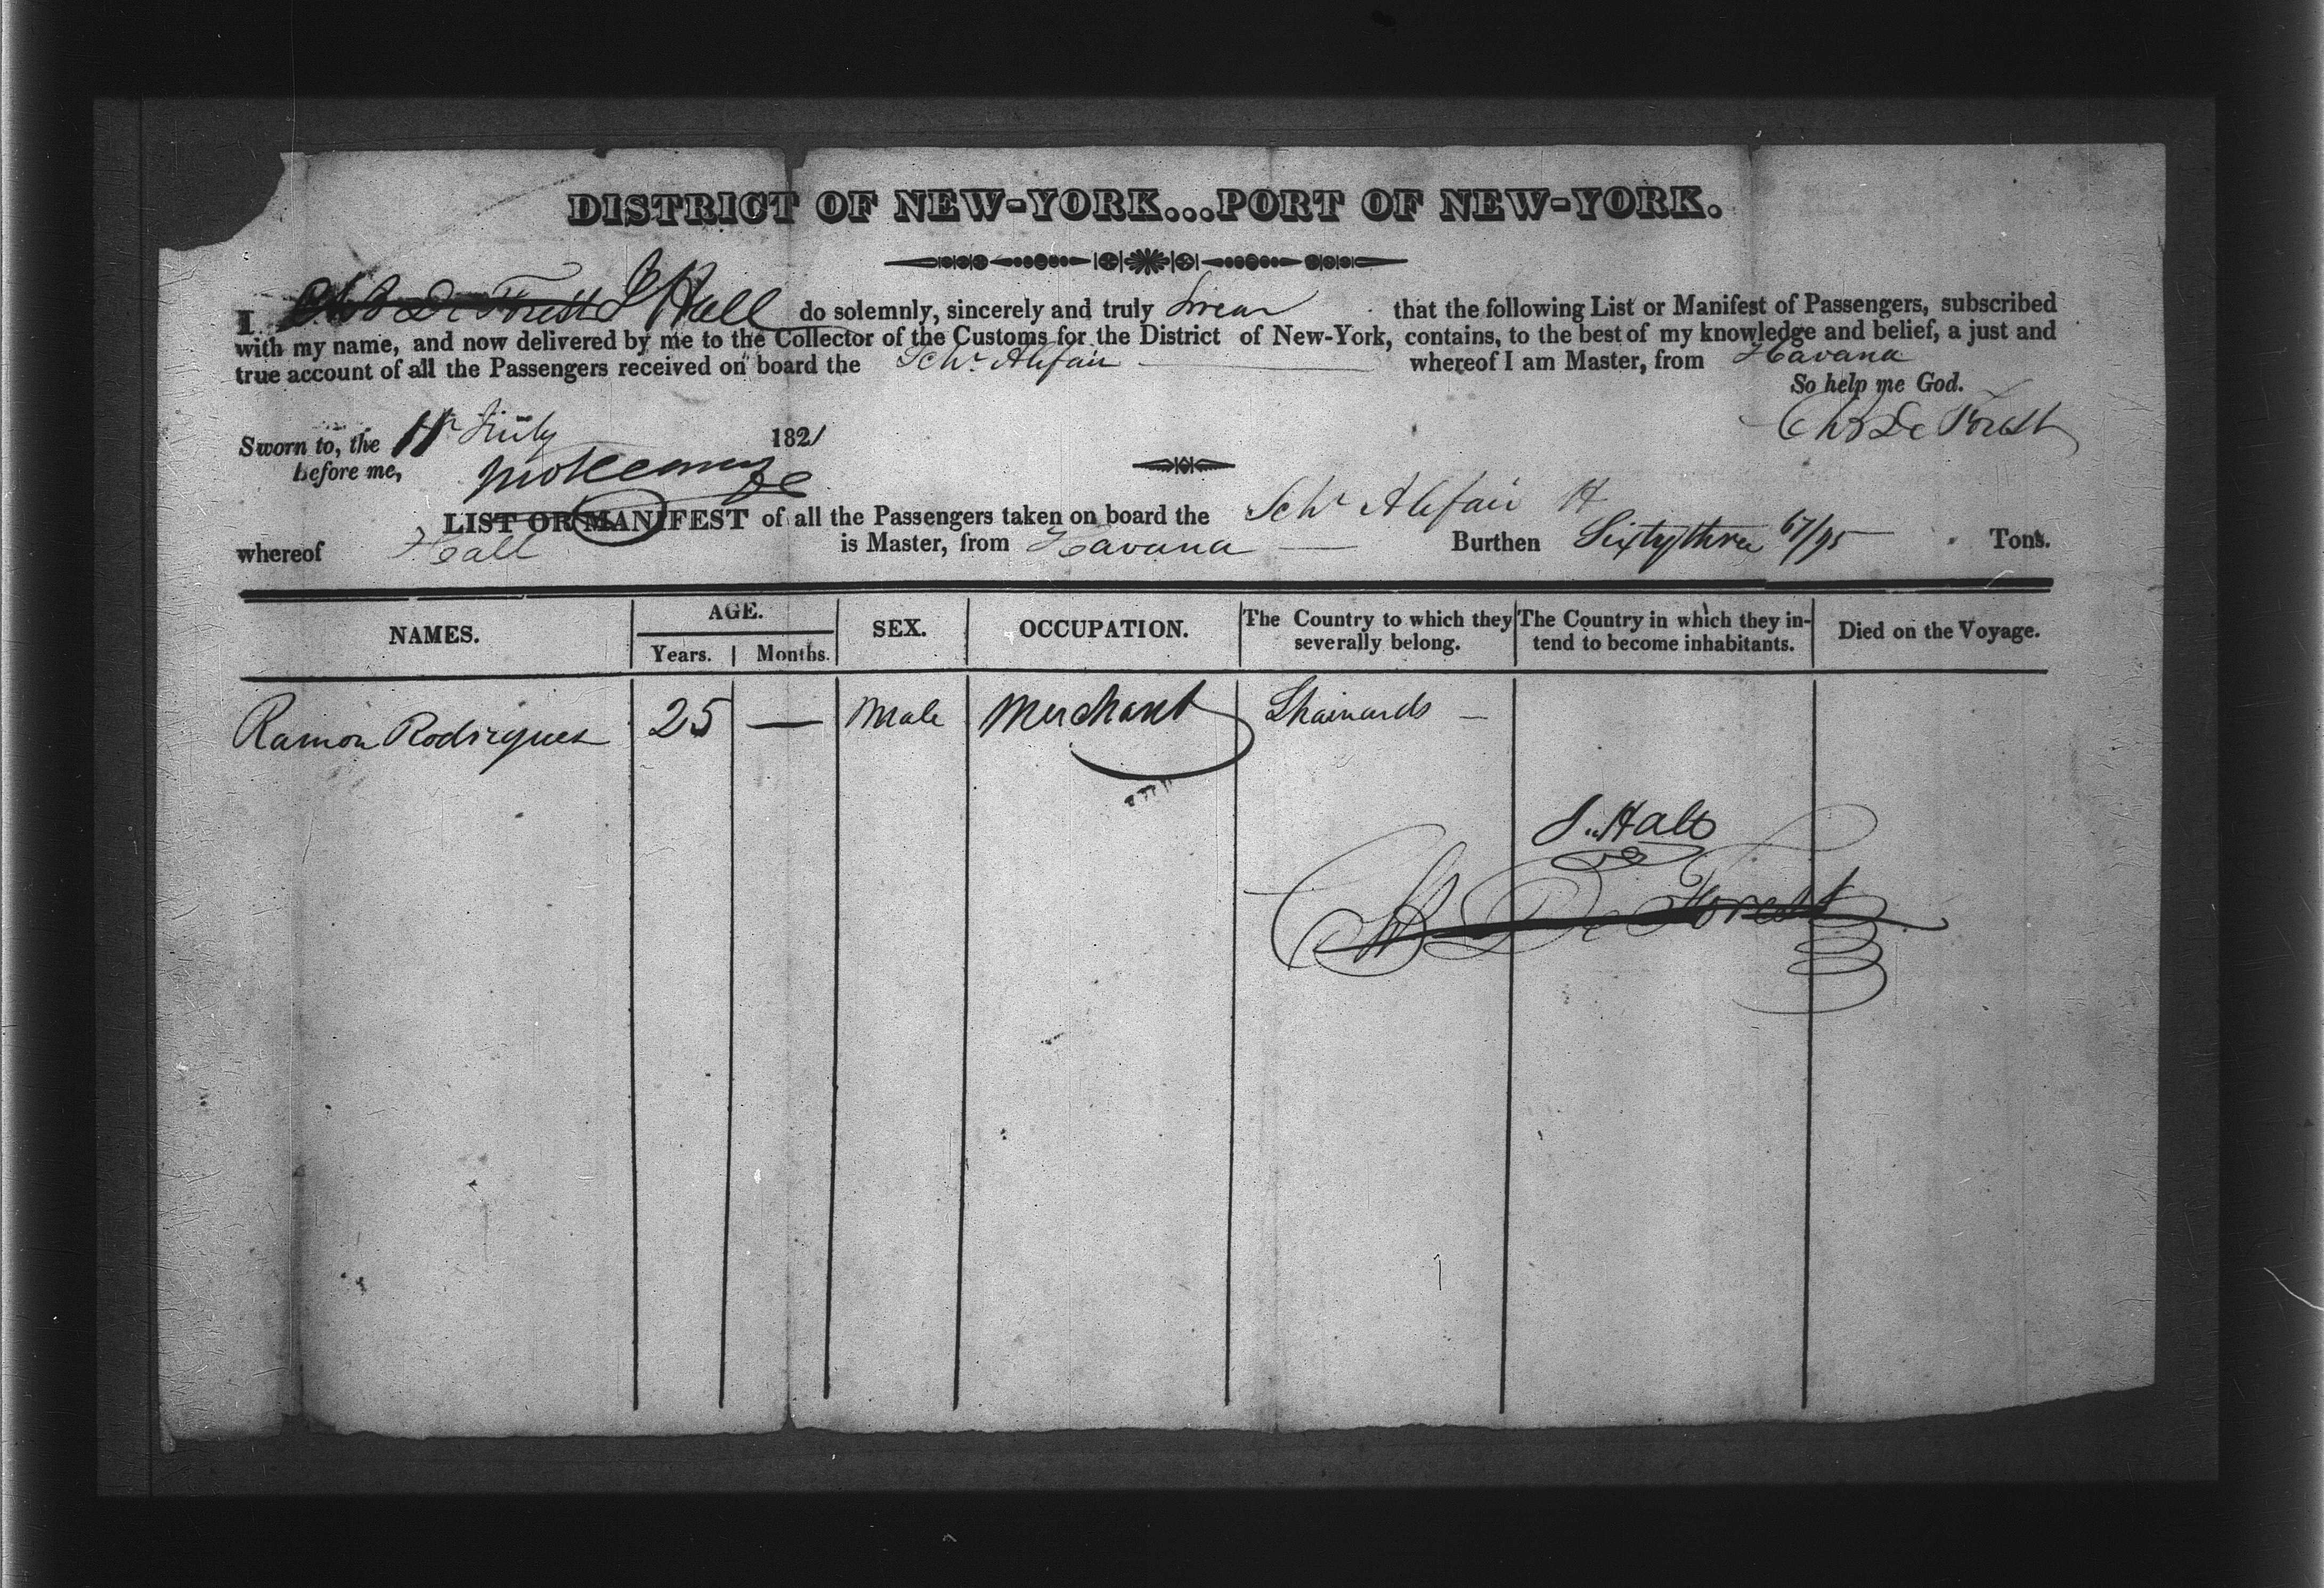 DISTRICT OF NEW-YORK...PORT OF NEW-YORK.
I Chs De Forest J Hall do solemnly, sincerely and truly Swear that the following List or Manifest of Passengers, subscribed
with my name, and now delivered by me to the Collector of the Customs for the District of New-York, contains, to the best of my knowledge and belief, a just and
true account of all the Passengers received on board the Schr Alefair whereof I am Master, from Havana
So help me God.
Sworn to, the 11 July 1821
Chs De Forest
before me,
LIST OR MANIFEST of all the Passengers taken on board the Schr Alefair H
whereof Hall is Master, from Havana — Burthen Sixty three 67/95 Tons.
NAMES. AGE. SEX. OCCUPATION. The Country to which they severally belong. The Country in which they intend to become inhabitants. Died on the Voyage.
Years. Months.
Ramon Rodirques 25 — Male Merchant —
J. Hall
Chs De Forest